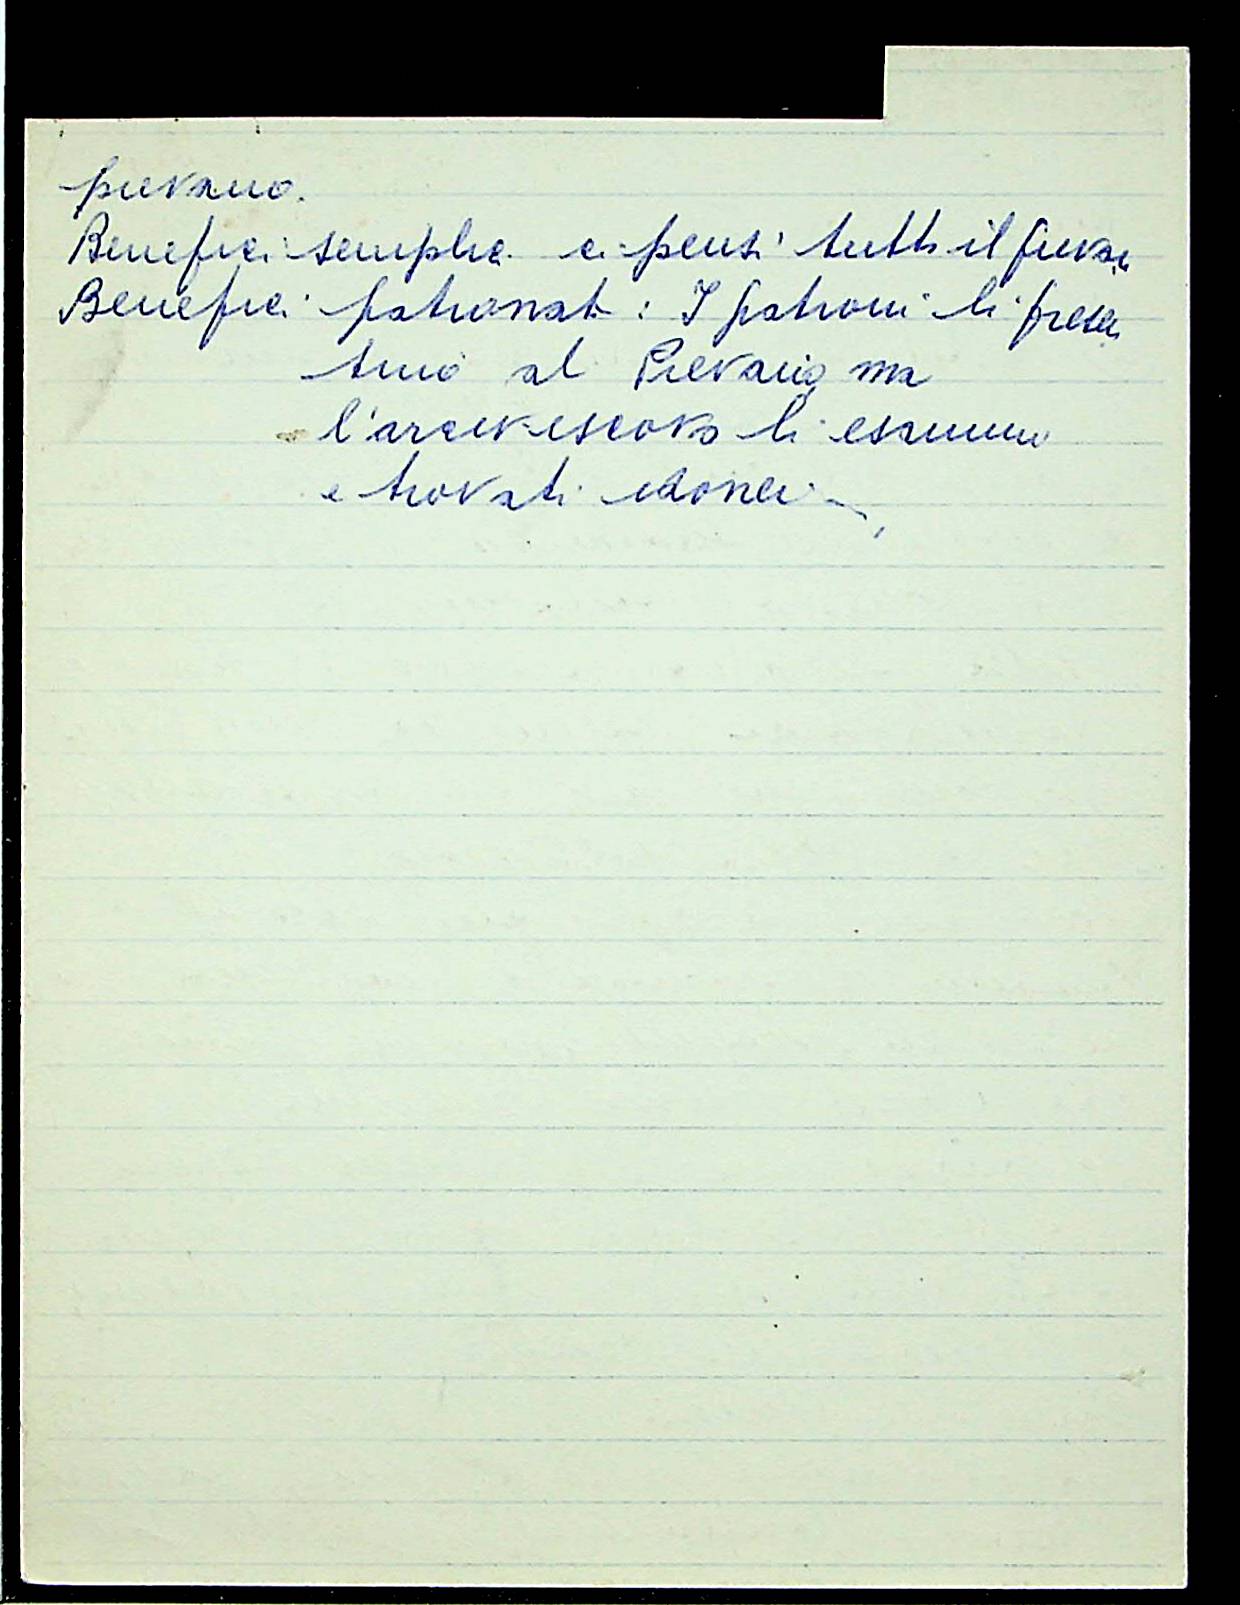 pievano.
Benefici semplici ci pensi tutto il pieva
Benefici patronati : I patroni li presen
tino al Pievano ma
l'arcivescovo li esamini
e trovati idonei